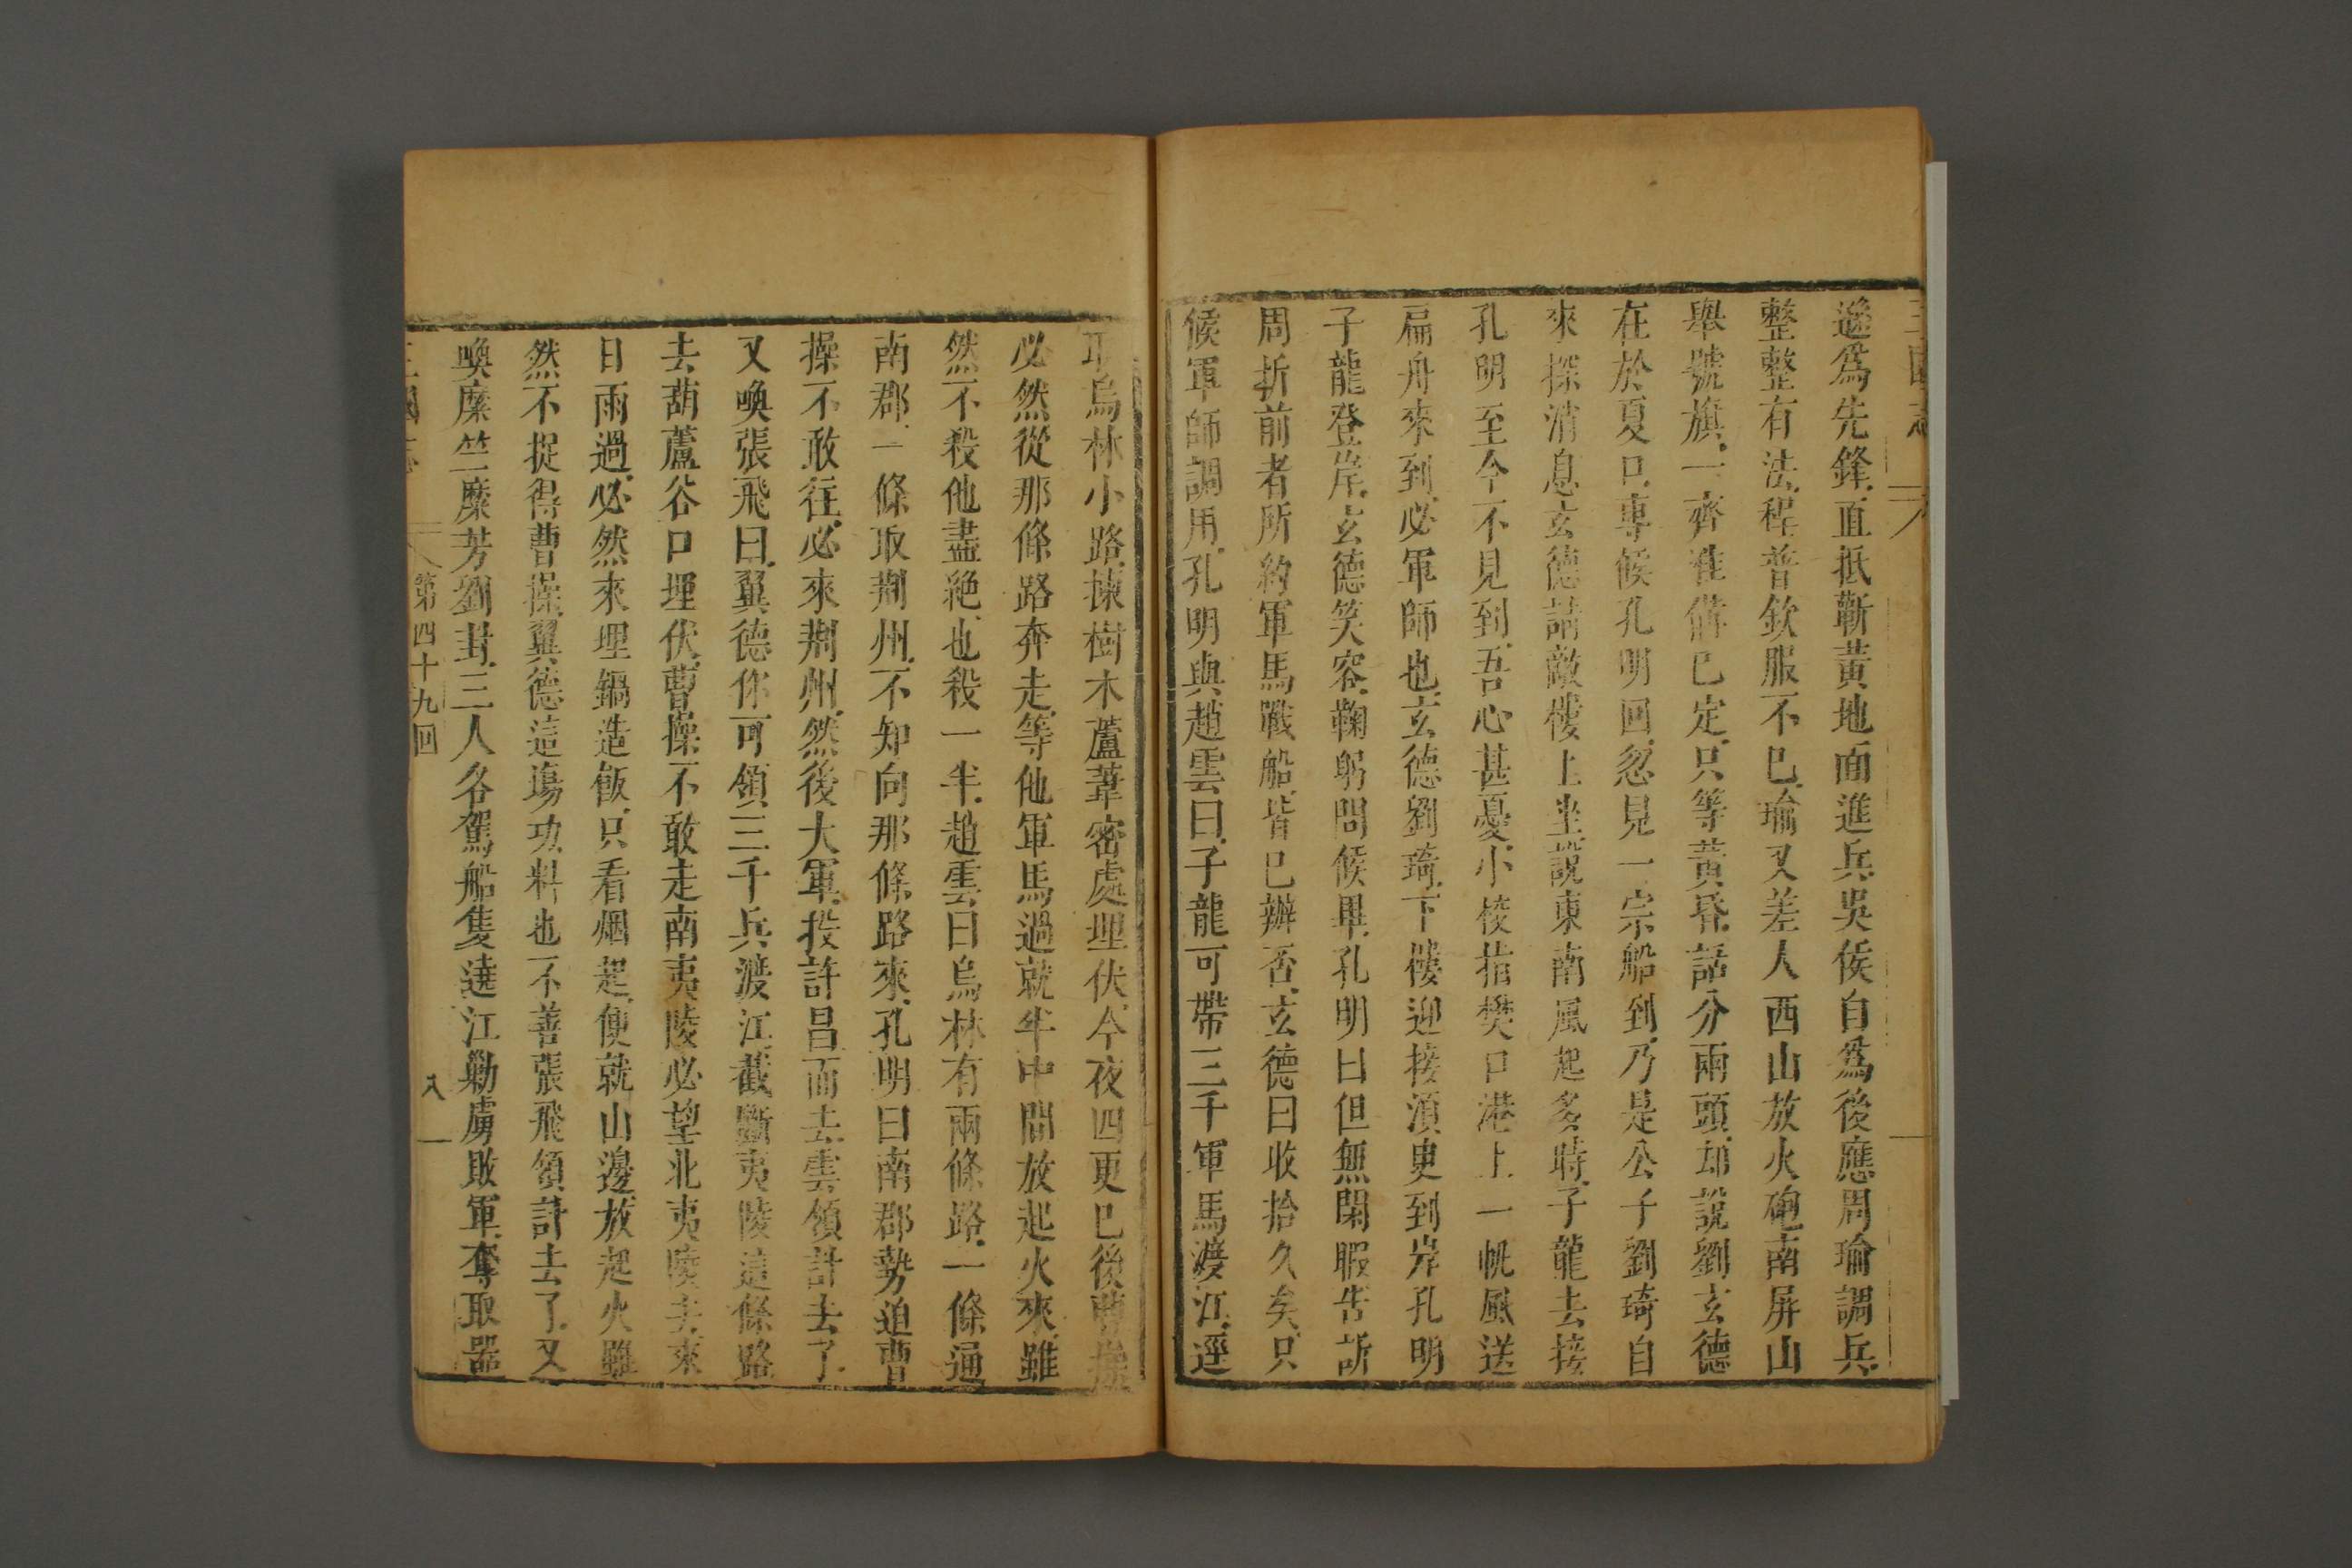 三國志
遜爲先鋒直抵蘄黃地面進兵吳侯自爲後應周瑜調兵
整整有法程普欽服不已瑜又差人西山放火砲南屏山
舉號旗一齊准備已定只等黃昏話分兩頭却說劉玄德
在於夏口專候孔明回忽見一宗船到乃是公子劉琦自
來探消息玄德請敵樓上坐說東南風起多時子龍去接
孔明至今不見到吾心甚憂小校指樊口港上一帆風送
扁舟來到必軍師也玄德劉琦下樓迎接須臾到岸孔明
子龍登岸玄德笑容鞠躬問候畢孔明曰但無閑暇告訴
周折前者所約軍馬戰船皆已辦否玄德曰收拾久矣只
候軍師調用孔明與趙雲曰子龍可帶三千軍馬渡江逕
取烏林小路揀樹木蘆葦密處埋伏今夜四更已後曹操
必然從那條路奔走等他軍馬過就半中間放起火來雖
然不殺他盡絕也殺一半趙雲曰烏林有兩條路一條通
南郡一條取荆州不知向那條路來孔明曰南郡勢迫曹
操不敢往必來荆州然後大軍投許昌而去雲領計去了
又喚張飛曰翼德你可領三千兵渡江截斷夷陵這條路
去葫蘆谷口埋伏曹操不敢走南夷陵必望北夷陵去來
日雨過必然來埋鍋造飯只看烟起便就山邊放起火雖
然不捉得曹操翼德這塲功料也不善張飛領計去了又
喚糜竺糜芳劉封三人各駕船隻遶江勦虜敗軍奪取器
三國志 第四十九回 八